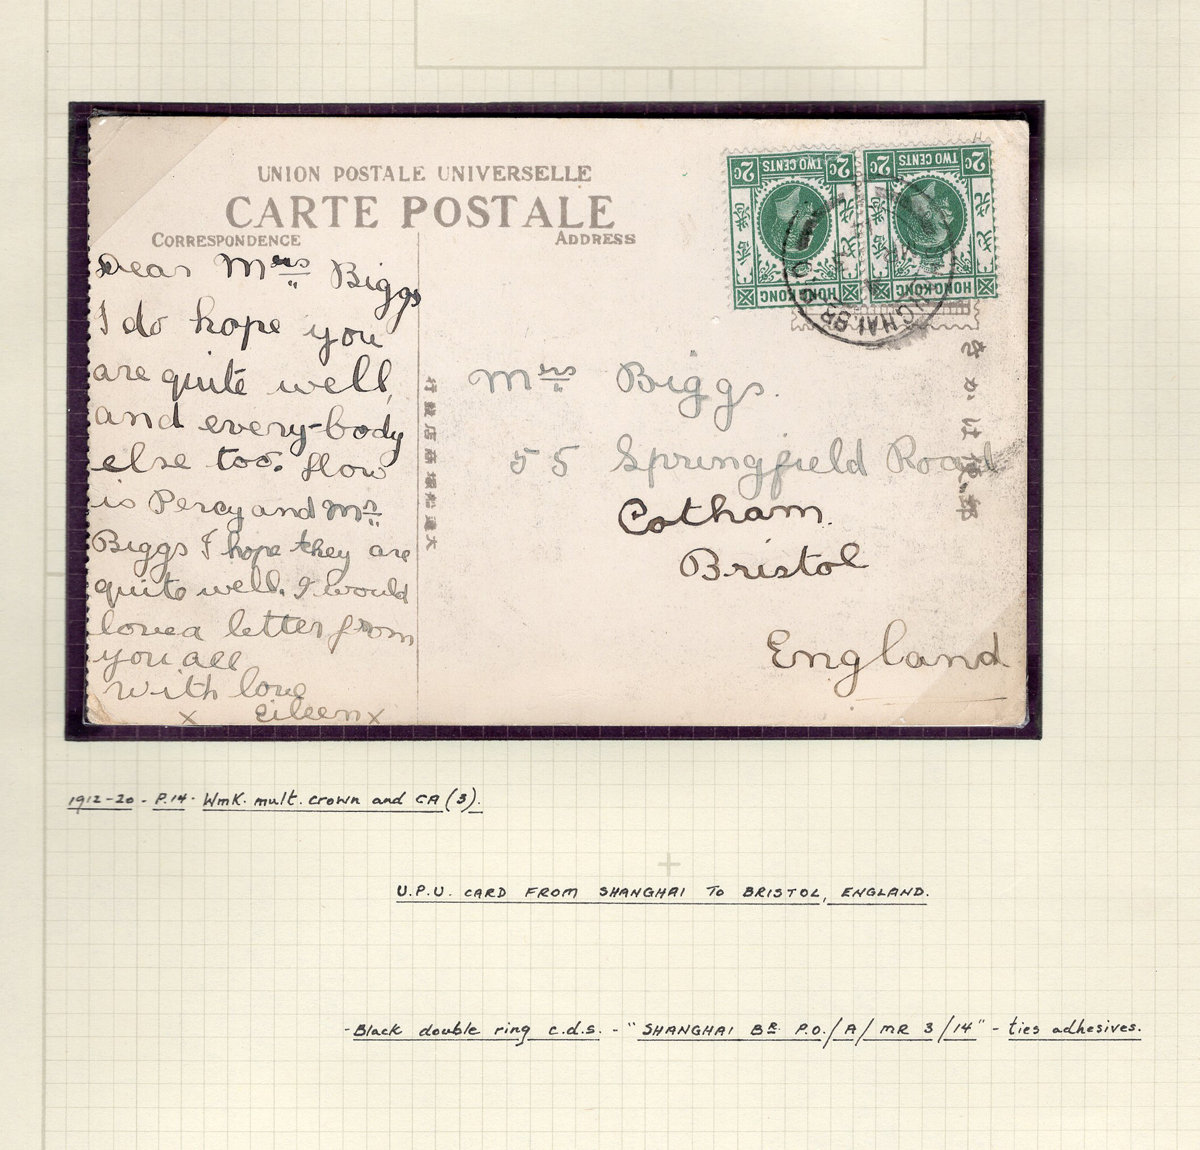 UNION POSTALE UNIVERSELLE
CARTE POSTALE
CORRESPONDENCE
ADDRESS
Dear Mrs Biggs
I do hope you
are quite well,
and every-body
else too. How
is Percy and Mr
Biggs I hope they are
quite well. I would
love a letter from
you all
with love
x Eileen x
行發店商場船連大
Mrs Biggs.
55 Springfield Road
Cotham.
Bristol
England
きかは便郵
2C TWO CENTS 2C
HONG KONG
2C TWO CENTS 2C
HONG KONG
1912-20 - P.14 - Wmk. mult. crown and CA (3).
U.P.U. CARD FROM SHANGHAI TO BRISTOL, ENGLAND.
- Black double ring c.d.s. - "SHANGHAI BR. P.O./A/MR 3/14" - ties adhesives.